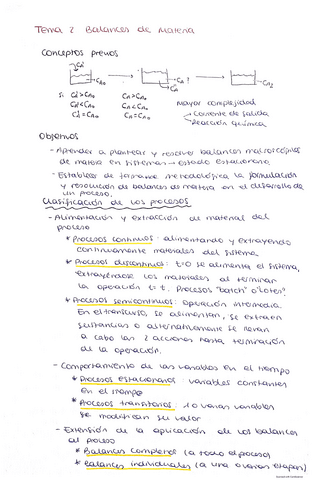 Tema 2 Balances de materia
Conceptos previos
Si Cα > CA0 CA > CA0
Cα < CA0 CA < CA0 Mayor complejidad
Cα = CA0 CA = CA0 → Corriente de salida
→ Reacción química
Objetivos
- Aprender a plantear y resolver balances macroscópicos
de materia en sistemas → estado estacionario
- Establecer de la metodológica la formulación
y resolución de balances de materia en el desarrollo de
un proceso.
Clasificación de los procesos
- Alimentación y extracción de material del
proceso
* Procesos continuos: alimentando y extrayendo
continuamente materiales del sistema.
* Procesos discontinuos: t=0 se alimenta el sistema,
extrayéndose los materiales al terminar
la operación t=t. Procesos "batch" o "lotes"
* Procesos semicontinuos: operación intermedia.
En el transcurso, se alimentan, se extraen
sustancias o alternativamente se llevan
a cabo las 2 acciones hasta terminación
de la operación.
- Comportamiento de las variables en el tiempo
* Procesos estacionarios: variables constantes
en el tiempo
* Procesos transitorios: variables
se modifican su valor
- Extensión de la aplicación de los balances
al proceso
* Balances completos (a todo el proceso)
* Balances individuales (a una o varias etapas)